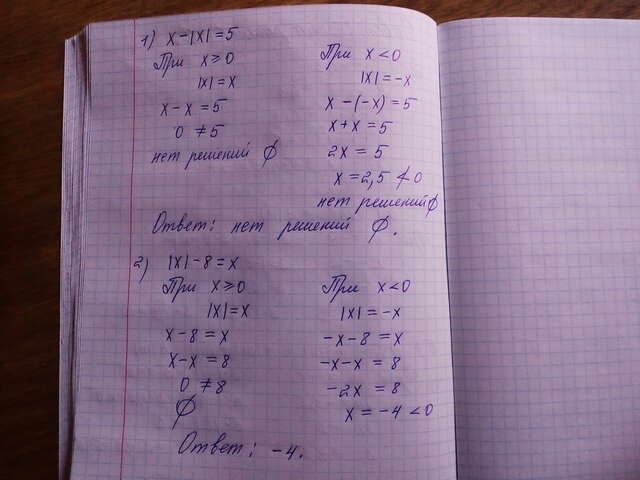 1) x-|x|=5
При x≥0
|x|=x
x-x=5
0≠5
нет решений Ø
При x<0
|x|=-x
x-(-x)=5
x+x=5
2x=5
x=2,5≮0
нет решений Ø
Ответ: нет решений Ø.
2) |x|-8=x
При x≥0
|x|=x
x-8=x
x-x=8
0≠8
Ø
При x<0
|x|=-x
-x-8=x
-x-x=8
-2x=8
x=-4<0
Ответ: -4.